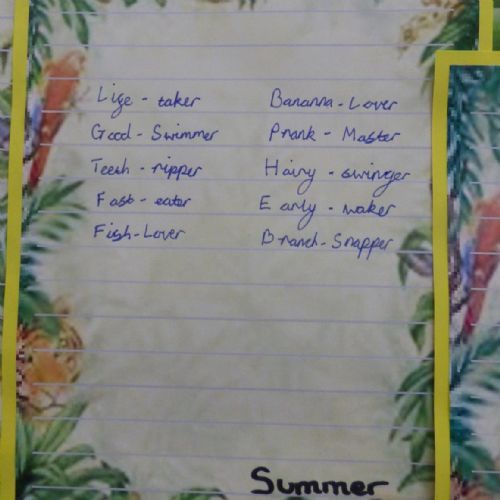 Life - taker
Good - Swimmer
Teeth - ripper
Fast - eater
Fish - Lover
Bananna - Lover
Prank - Master
Hairy - swinger
Early - waker
Branch - Snapper
Summer